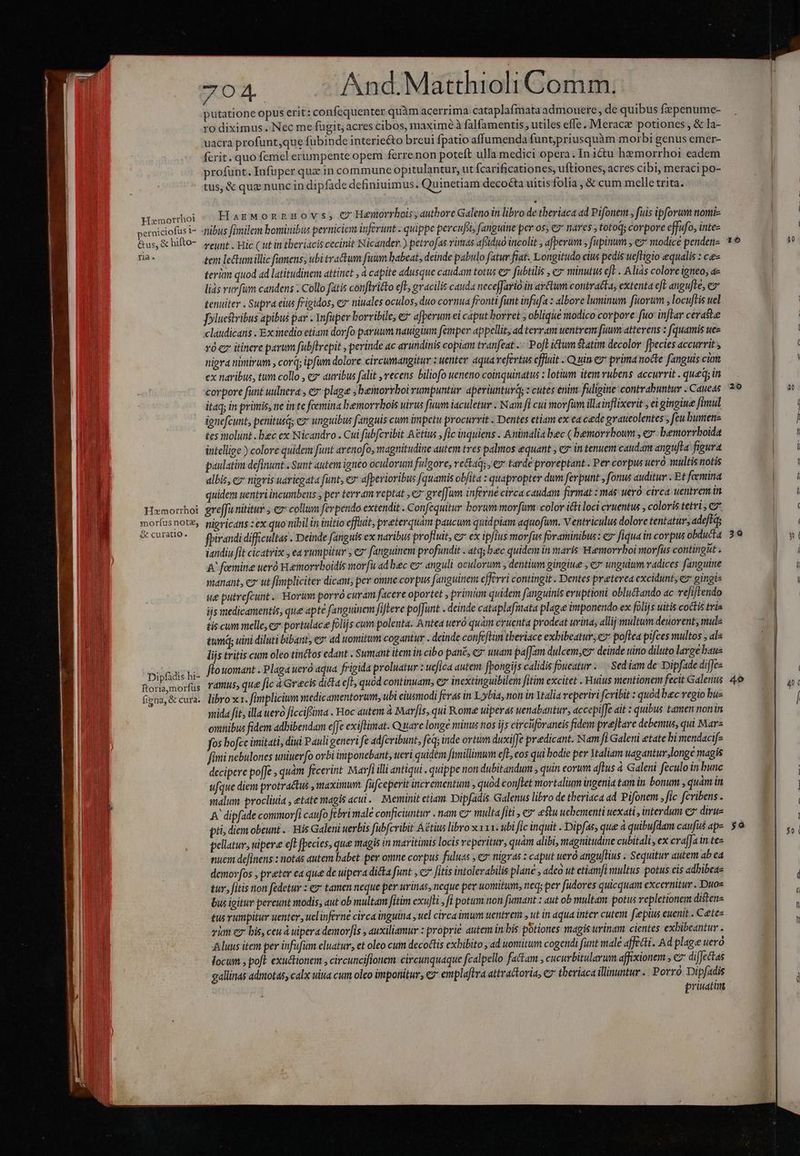 704 And. Matthioli Comm.
putatione opus erit: consequenter quàm acerrima cataplasmata admouere, de quibus sæpenume-
ro diximus. Nec me fugit, acres cibos, maximè à salsamentis, utiles esse. Meracæ potiones, & la-
uacra prosunt, que subinde interiecto breui spatio assumenda sunt, priusquàm morbi genus emer-
serit. quo semel erumpente opem ferre non potest ulla medici opera. In ictu hæmorrhoi eadem
prosunt. Insuper quæ in commune opitulantur, ut scarificationes, ustiones, acres cibi, meraci po-
tus, & quæ nunc in dipsade definiuimus. Quinetiam decocta uitis folia, & cum melle trita.
Hæmorrhoi
perniciosus i-
ctus, & histo-
ria.
HAEMORRHOVS, & Hæmorrhois, authore Galeno in libro de theriaca ad Pisonem, suis ipsorum nomi=
nibus similem hominibus perniciem inferunt. quippe percussis, sanguine per os, & nares, totoq; corpore effuso, inte=
reunt. Hic (ut in theriacis cecinit Nicander) petrosas rimas assiduò incolit, asperum, supinum, & modicè penden= 10
tem lectum illic sumens, ubi tractum suum habeat, deinde pabulo satur fiat. Longitudo eius pedis uestigio æqualis: cæ=
terùm quod ad latitudinem attinet, à capite adusque caudam totus & subtilis, & minutus est. Aliàs colore igneo, a=
liàs rursum candens. Collo satis constricto est, gracilis cauda necessariò in arctum contracta, extenta est angustè, &
tenuiter. Supra eius frigidos, & niuales oculos, duo cornua fronti sunt infusa: albore luminum suorum, locustis uel
syluestribus apibus par. Insuper horribile, & asperum ei caput horret, obliquè modico corpore suo instar cerastæ
claudicans. Ex medio etiam dorso paruum nauigium semper appellit, ad terram uentrem suum atterens: squamis ue=
rò & itinere parum substrepit, perinde ac arundinis copiam transeat. Post ictum statim decolor species accurrit,
nigra nimirum, corq; ipsum dolore circumangitur: uenter aqua refertus effluit. Quin & prima nocte sanguis cùm
ex naribus, tum collo, & auribus salit, recens bilioso ueneno coinquinatus: lotium item rubens accurrit. queq; in
corpore sunt uulnera, & plagæ, hæmorrhoi rumpuntur aperiunturq;: cutes enim fuligine contrahuntur. Caueas 20
itaq; in primis, ne in te fœmina hæmorrhois uirus suum iaculetur. Nam si cui morsum illa inflixerit, ei gingiuæ simul
ignescunt, penitusq; & unguibus sanguis cum impetu procurrit. Dentes etiam ex ea cæde graueolentes, seu humen=
tes molunt. hæc ex Nicandro. Cui subscribit Aëtius, sic inquiens. Animalia hæc (hæmorrhoum, & hæmorrhoida
intellige) colore quidem sunt arenoso, magnitudine autem tres palmos æquant, & in tenuem caudam angusta figura
paulatim desinunt. Sunt autem igneo oculorum fulgore, rectaq;, & tardè proreptant. Per corpus uerò multis notis
albis, & nigris uariegata sunt, & asperioribus squamis obsita: quapropter dum serpunt, sonus auditur. Et fœmina
quidem uentri incumbens, per terram reptat, & gressum infernè circa caudam firmat: mas uerò circa uentrem in
Hæmorrhoi
morsus notæ,
& curatio.
gressu nititur, & collum serpendo extendit. Consequitur horum morsum color icti loci cruentus, coloris tetri, &
nigricans: ex quo nihil in initio effluit, præterquàm paucum quidpiam aquosum. Ventriculus dolore tentatur, adestq;
spirandi difficultas. Deinde sanguis ex naribus profluit, & ex ipsius morsus foraminibus: & si qua in corpus obducta 30
iandiu sit cicatrix, ea rumpitur, & sanguinem profundit. atq; hæc quidem in maris Hæmorrhoi morsus contingut.
A' fœminæ uerò Hæmorrhoidis morsu adhæc & anguli oculorum, dentium gingiuæ, & unguium radices sanguine
manant, & ut simpliciter dicam, per omne corpus sanguinem efferri contingit. Dentes præterea excidunt, & gingi=
uæ putrescunt. Horum porrò curam facere oportet, primùm quidem sanguinis eruptioni obluctando ac resistendo
ijs medicamentis, que aptè sanguinem sistere possunt. deinde cataplasmata plagæ imponendo ex folijs uitis coctis tri=
tis cum melle, & portulacæ folijs cum polenta. Antea uerò quàm cruenta prodeat urina, allij multum deuorent, mul=
tumq; uini diluti bibant, & ad uomitum cogantur. deinde confestim theriacæ exhibeatur, & postea pisces multos, al=
lijs tritis cum oleo tinctos edant. Sumant item in cibo panē, & uuam passam dulcem, & deinde uino diluto large haus=
sto uomant. Plaga uerò aqua frigida proluatur: uesica autem spongijs calidis foueatur. Sed iam de Dipsade disse=
Dipsadis hi-
storia, morsus
signa, & cura.
ramus, que sic à Græcis dicta est, quòd continuam, & inextinguibilem sitim excitet. Huius mentionem fecit Galenus 40
libro x1. simplicium medicamentorum, ubi eiusmodi feras in Lybia, non in Italia reperiri scribit: quòd hæc regio hu=
mida sit, illa uerò siccissima. Hoc autem à Marsis, qui Romæ uiperas uenabantur, accepisse ait: quibus tamen non in
omnibus fidem adhibendam esse existimat. Quare longè minus nos ijs circūforaneis fidem præstare debemus, qui Mar=
sos hosce imitati, diui Pauli generi se adscribunt, seq; inde ortum duxisse prædicant. Nam si Galeni ætate hi mendacis=
simi nebulones uniuerso orbi imponebant, ueri quidem simillimum est, eos qui hodie per Italiam uagantur, longè magis
decipere posse, quàm fecerint Marsi illi antiqui. quippe non dubitandum, quin eorum astus à Galeni seculo in hunc
usque diem protractus, maximum susceperit incrementum, quòd constet mortalium ingenia tam in bonum, quàm in
malum procliuia, ætate magis acui. Meminit etiam Dipsadis Galenus libro de theriaca ad Pisonem, sic scribens.
A' dipsade commorsi causo febri malè conficiuntur. nam & multa siti, & æstu uehementi uexati, interdum & diru=
pti, diem obeunt. His Galeni uerbis subscribit Aëtius libro x111. ubi sic inquit. Dipsas, que à quibusdam causus ap= 50
pellatur, uiperæ est species, que magis in maritimis locis reperitur, quàm alibi, magnitudine cubitali, ex crassa in te=
nuem desinens: notas autem habet per omne corpus fuluas, & nigras: caput uerò angustius. Sequitur autem ab ea
demorsos, præter ea que de uipera dicta sunt, & sitis intolerabilis planè, adeò ut etiamsi multus potus eis adhibea=
tur, sitis non sedetur: & tamen neque per urinas, neque per uomitum, neq; per sudores quicquam excernitur. Duo=
bus igitur pereunt modis, aut ob multam sitim exusti, si potum non sumant: aut ob multam potus repletionem disten=
tus rumpitur uenter, uel infernè circa inguina, uel circa imum uentrem, ut in aqua inter cutem sæpius euenit. Cæte=
rùm & his, ceu à uipera demorsis, auxiliamur: propriè autem in his potiones magis urinam cientes exhibeantur.
Aluus item per infusum eluatur, et oleo cum decoctis exhibito, ad uomitum cogendi sunt malè affecti. Ad plagæ uerò
locum, post exuctionem, circuncisionem circunquaque scalpello factam, cucurbitularum affixionem, & dissectas
gallinas admotas, calx uiua cum oleo imponitur, & emplastra attractoria, & theriaca illinuntur. Porrò Dipsadis
priuatim